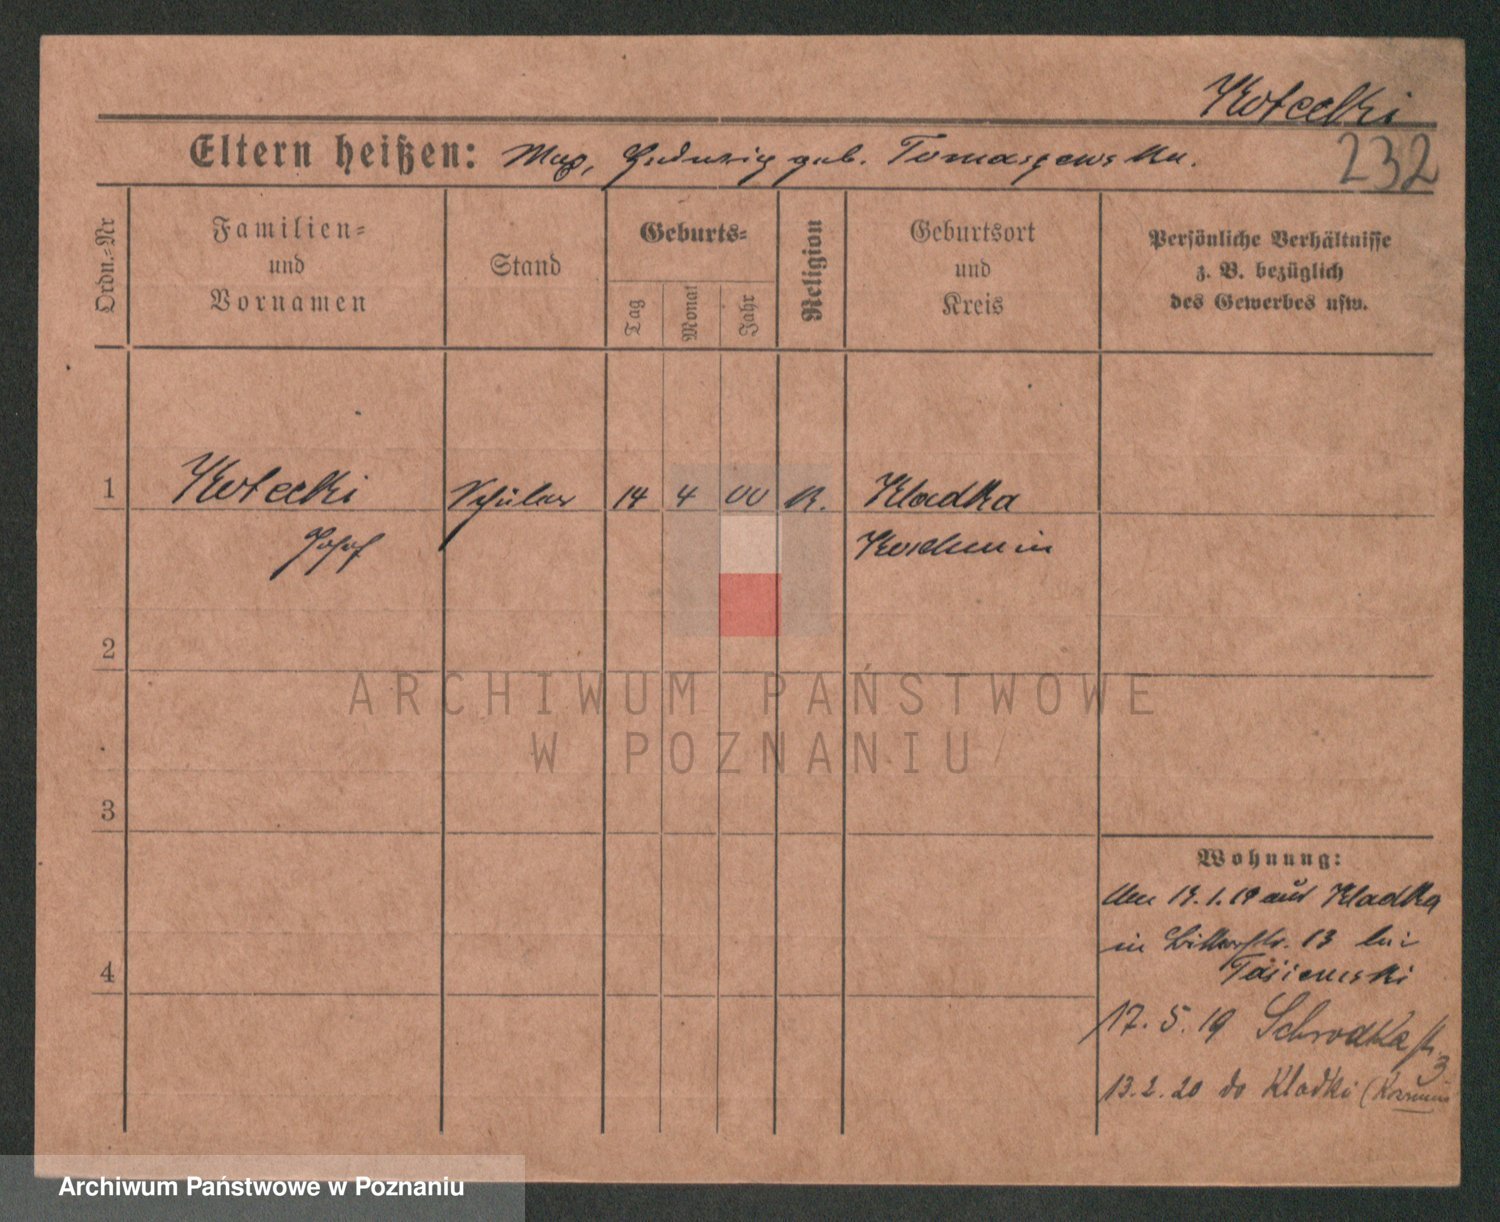 Kotecki
232
Eltern heißen: Max, Hedwig geb. Tomaszewska.
Ordn.-Nr
Familien-
und
Vornamen
Stand
Geburts-
Tag
Monat
Jahr
Religion
Geburtsort
und
Kreis
Persönliche Verhältnisse
z. B. bezüglich
des Gewerbes usw.
1 Kotecki Schüler 14 4 00 K. Kladka
Josef Koschmin
2
3
4
Wohnung:
Am 1.19 aus Kladka
in 13 bei
17. 5. 19 Schrodkastr. 3
13. 2. 20 do Kladki (Kozmin
ARCHIWUM PAŃSTWOWE
W POZNANIU
Archiwum Państwowe w Poznaniu